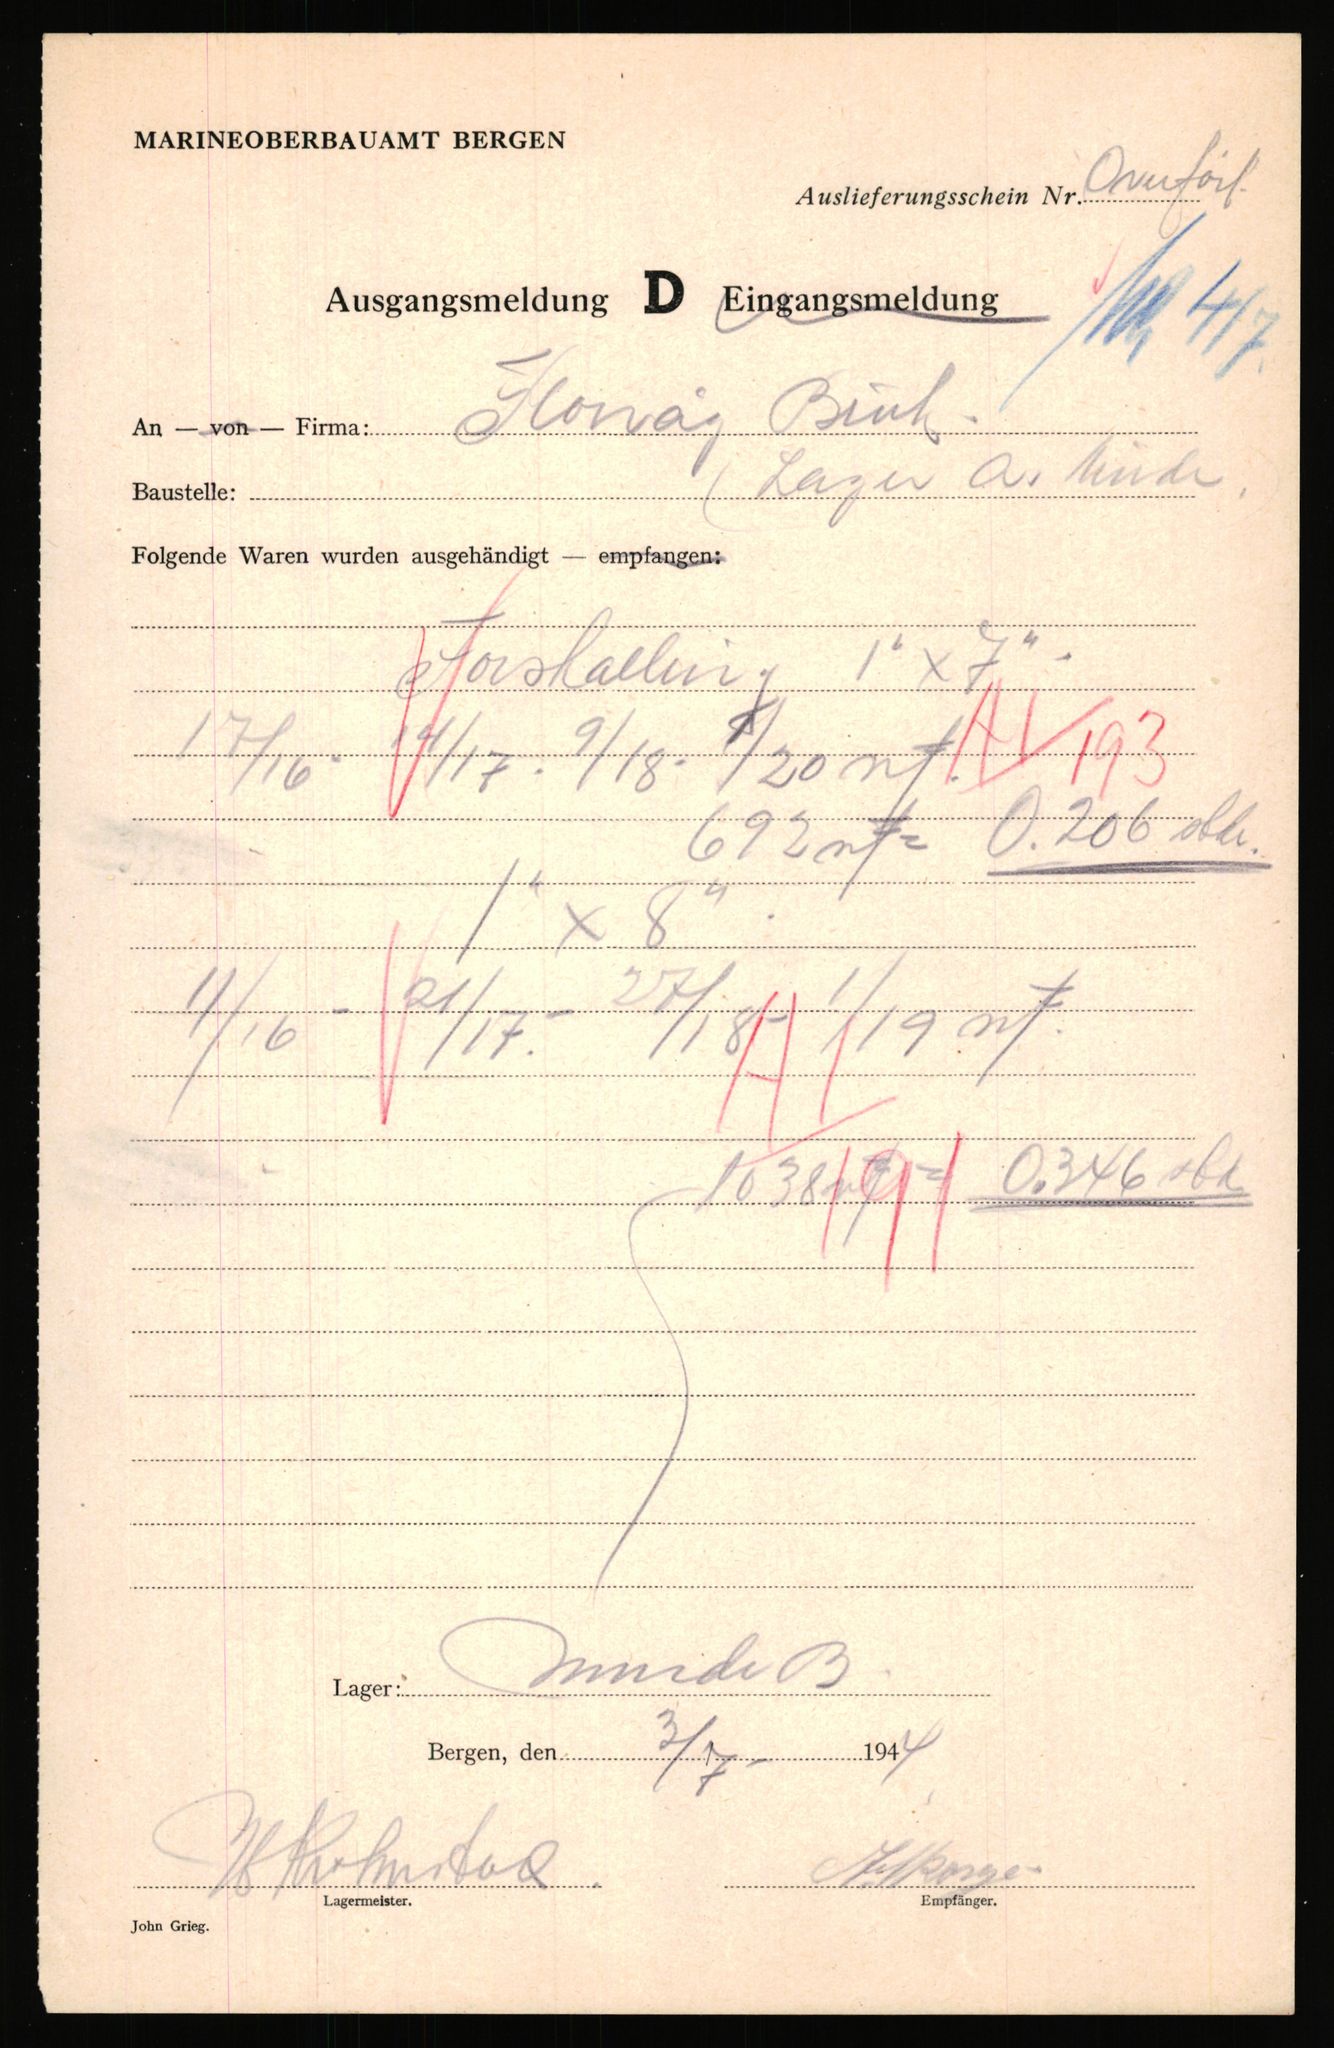 MARINEOBERBAUAMT BERGEN
Auslieferungsschein Nr. Overförf.
Ausgangsmeldung D Eingangsmeldung
4/7.
An — von — Firma: Florvåg Bruk.
Baustelle: (Lager A. Minde.
Folgende Waren wurden ausgehändigt — empfangen:
Forskalling 1" x 7".
17/16. 14/17. 9/18. 1/20 nf. A V 193
692 nf = 0.206 stdr.
1" x 8".
11/16 - 21/17. - 27/18 - 1/19 nf.
A V
1038 nf = 0.346 std.
191
Lager: Minde B.
Bergen, den 3/7- 1944
Lagermeister. Empfänger.
John Grieg.